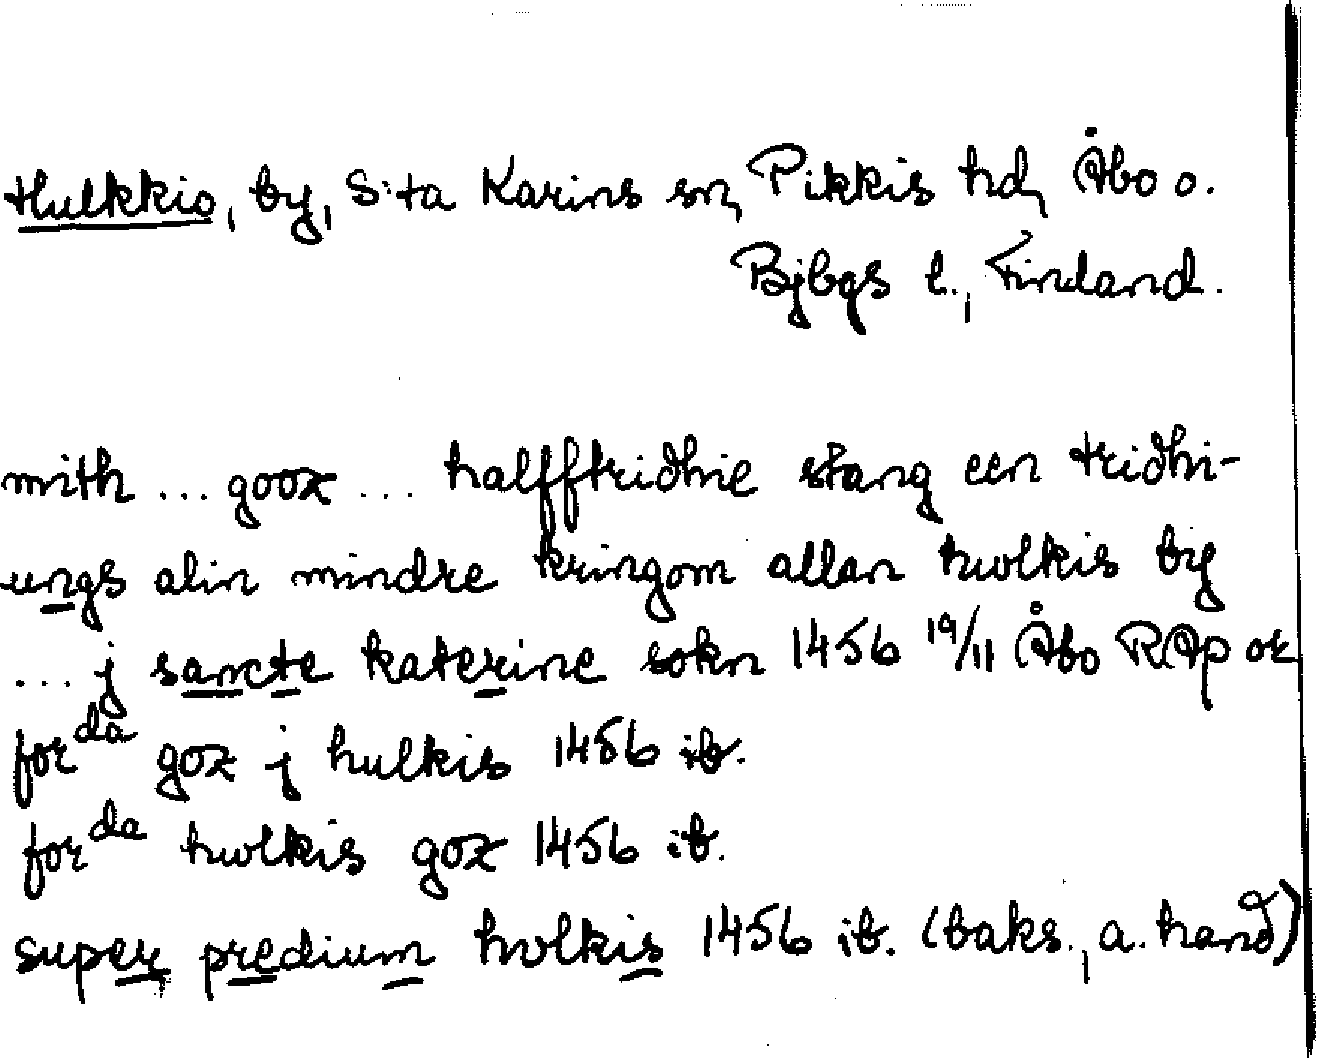 Hulkkio, by, S:ta Karins sn, Pikkis hd, Åbo o.
Bjbgs l., Finland.
mith ... gooz ... halfftridhie stang een tridhi-
ungs alin mindre kringom allan hwlkis by
... j sancte katerine sokn 1456 19/11 Åbo RAp or
for da goz j hulkis 1456 ib.
for da hwlkis goz 1456 ib.
super predium hvlkis 1456 ib. (baks., a. hand)